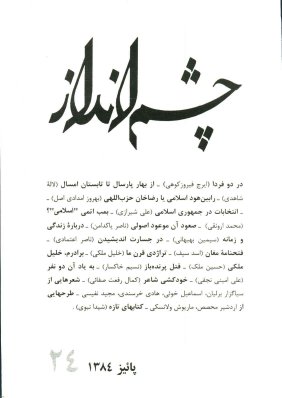 چشم‌انداز
در دو فردا (ایرج فیروزکوهی) ـ از بهار پارسال تا تابستان امسال (لالهٔ
شاهدی) ـ رابین‌هود اسلامی یا رضاخان حزب‌اللهی (بهروز امدادی اصل)
ـ انتخابات در جمهوری اسلامی (علی شیرازی) ـ بمب اتمی "اسلامی"؟
(محمد ارونقی) ـ صعود آن موعود اصولی (ناصر پاکدامن) ـ دربارهٔ زندگی
و زمانه (سیمین بهبهانی) ـ در جسارت اندیشیدن (ناصر اعتمادی) ـ
فتحنامهٔ مغان (اسد سیف) ـ تراژدی قرن ما (خلیل ملکی) ـ برادرم، خلیل
ملکی (حسین ملک) ـ قتل پرنده‌باز (نسیم خاکسار) ـ به یاد آن دو نفر
(علی امینی نجفی) ـ خودکشی شاعر (کمال رفعت صفائی) ـ شعرهایی از
سیاگزار برلیان، اسماعیل خوئی، هادی خرسندی، مجید نفیسی ـ طرحهایی
از اردشیر محصص، ماریوش ولانسکی ـ کتابهای تازه (شیدا نبوی) .
۲۴
پائیز ۱۳۸۴